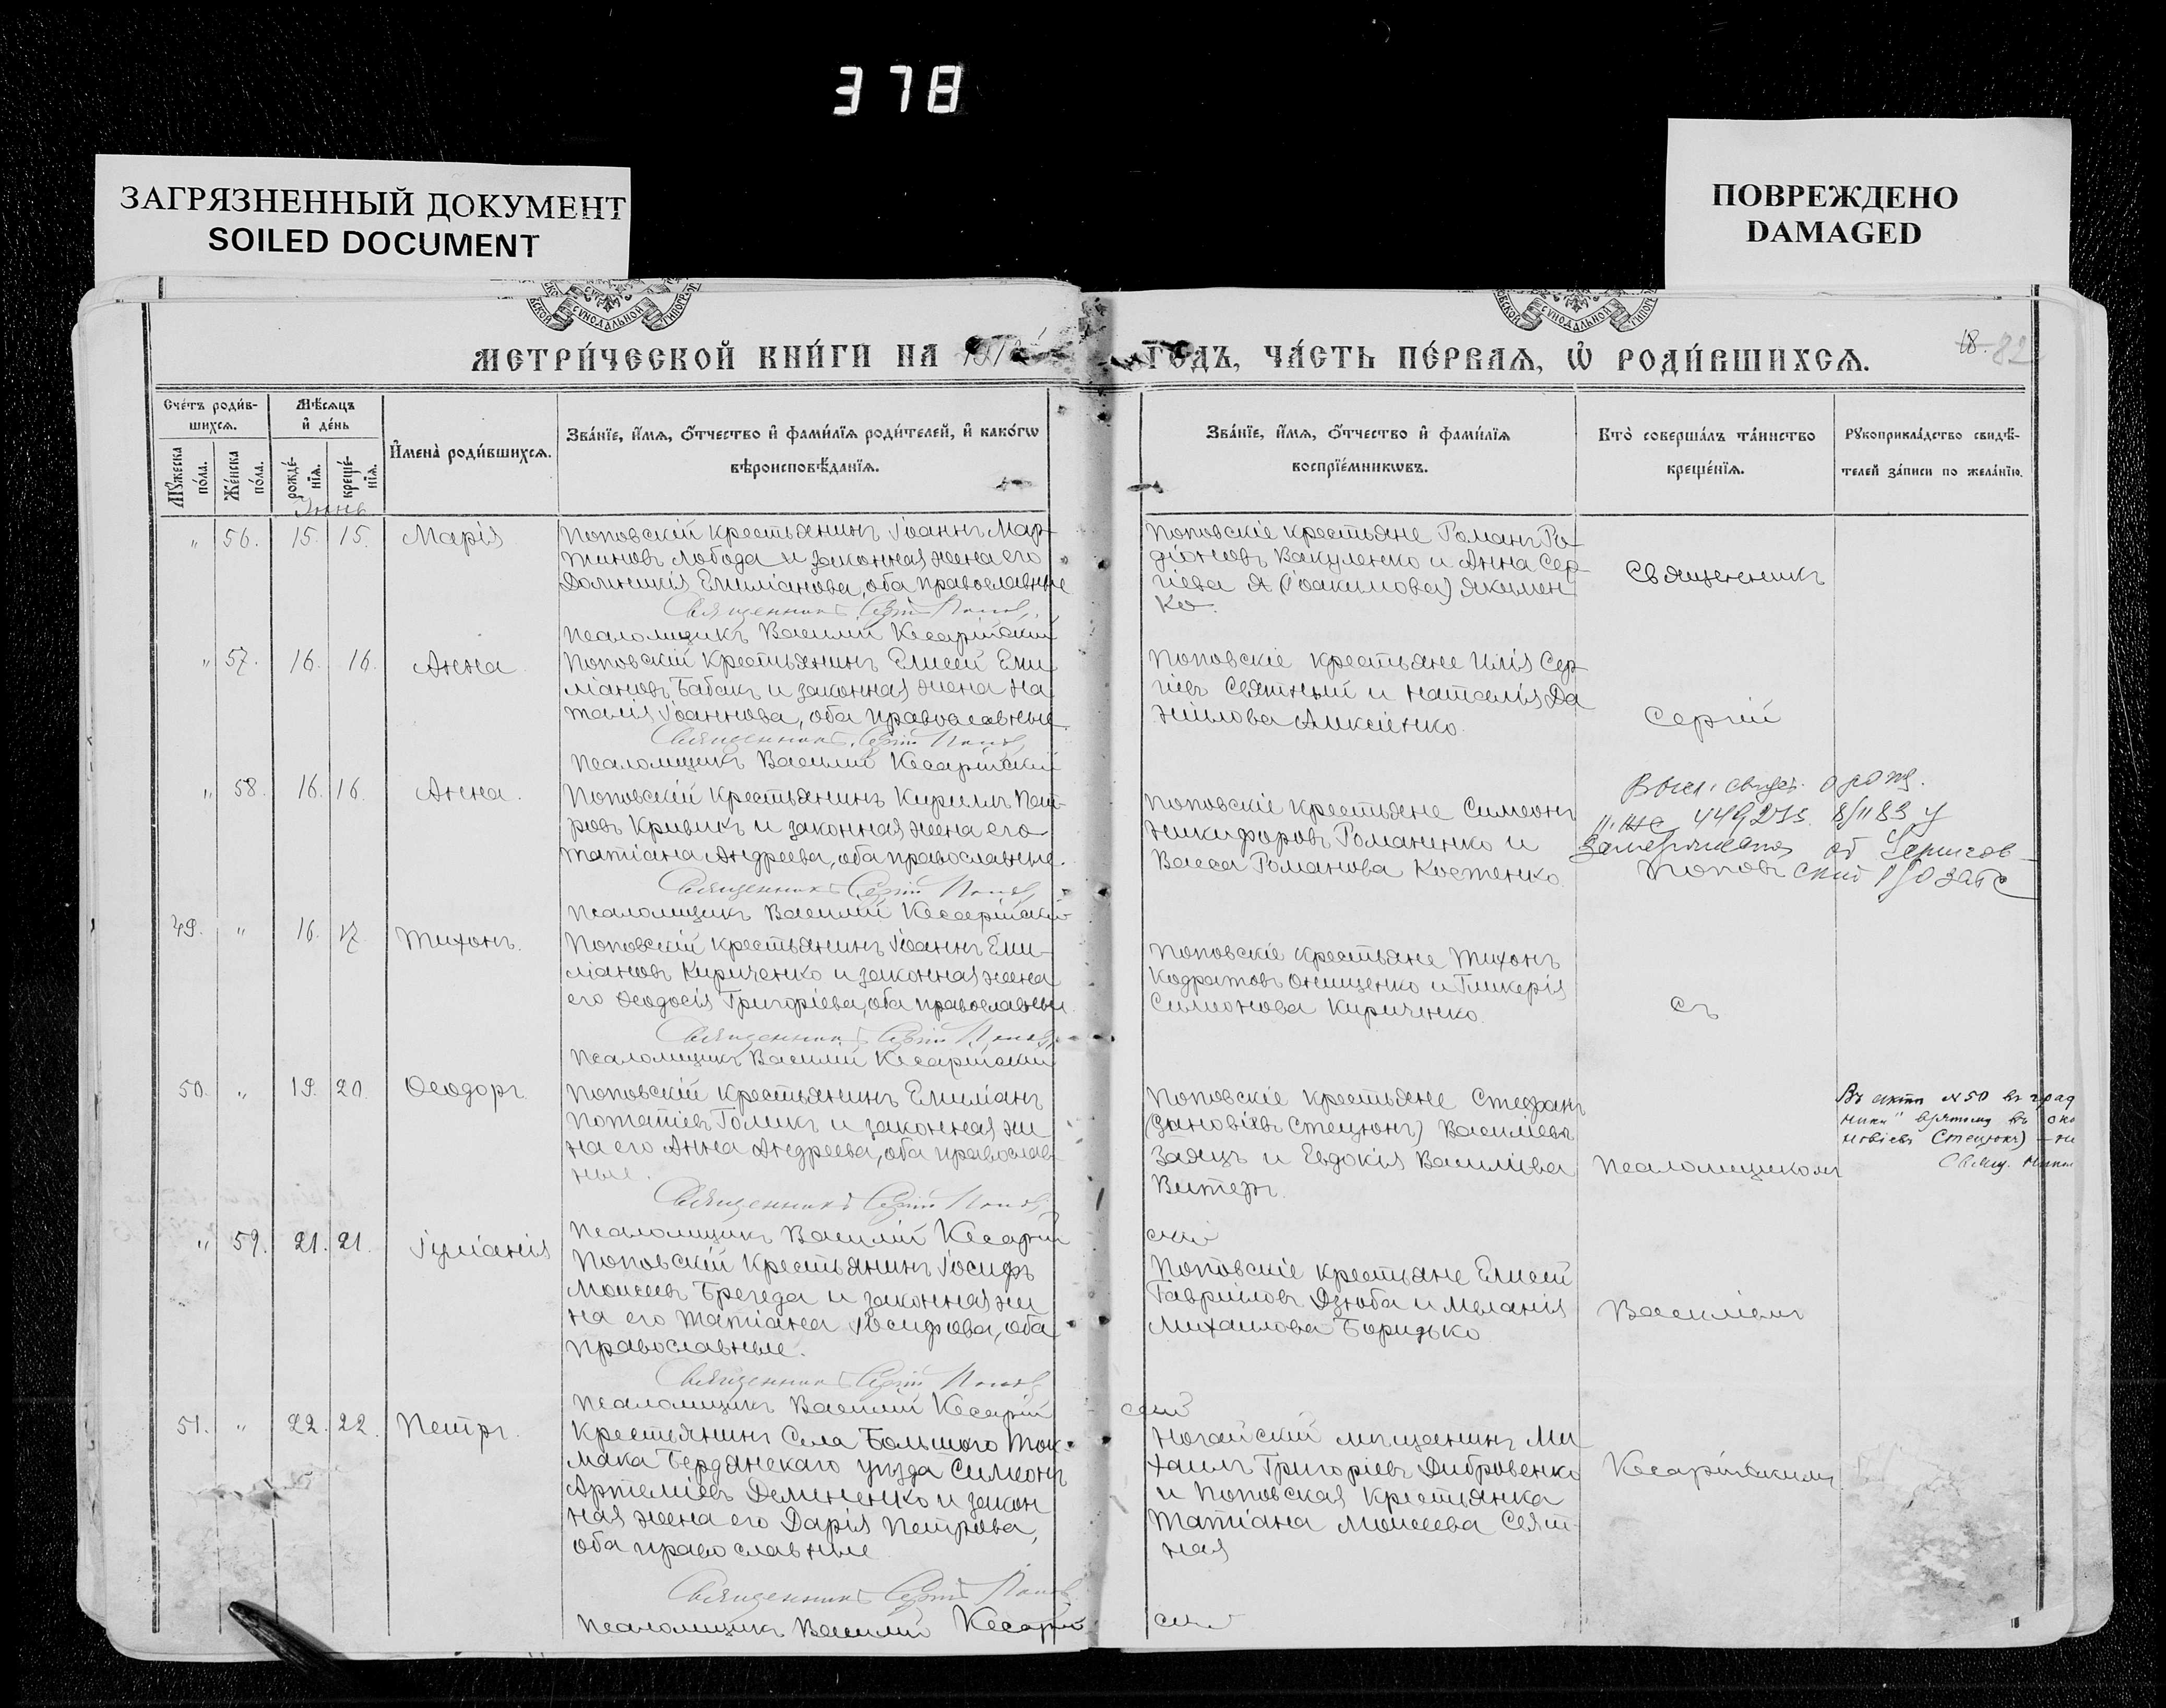 378
ЗАГРЯЗНЕННЫЙ ДОКУМЕНТ
SOILED DOCUMENT
ПОВРЕЖДЕНО
DAMAGED
СѴНОДАЛЬНОЙ
СѴНОДАЛЬНОЙ
МЕТРИ́ЧЕСКОЙ КНИ́ГИ НА
ГОДЪ, ЧА́СТЬ ПЕ́РВАѦ, Ѡ҆ РОДИ́ВШИХСѦ.
18. 82
Сче́тъ роди́в-
шихсѧ.
Мѣ́сѧцъ
и҆ де́нь
Мꙋ́жеска
по́ла.
Же́нска
по́ла.
рожде́-
нїѧ.
креще́-
нїѧ.
И҆мена̀ роди́вшихсѧ.
Зва́нїе, и҆́мѧ, ѻ҆́тчество и҆ фами́лїѧ роди́телей, и҆ како́гѡ
вѣроисповѣ́данїѧ.
Зва́нїе, и҆́мѧ, ѻ҆́тчество и҆ фами́лїѧ
воспрїе́мникѡвъ.
Кто̀ соверша́лъ та́инство
креще́нїѧ.
Рꙋкоприкла́дство свидѣ́-
телей за́писи по жела́нїю.
Іюнь
" 56. 15. 15. Марія
Поповскій крестьянинъ Іоаннъ Мар-
тиновъ Лобода и законная жена его
Домникія Емиліанова, оба православные
Священникъ Сергій Поповъ
Псаломщикъ Василій Кесарійскій
Поповскіе крестьяне Романъ Ро-
діоновъ Вакуленко и Анна Сер-
гіева Я (Іоакимова) Якимен
ко.
Священникъ
" 57. 16. 16. Анна
Поповскій крестьянинъ Елисей Еми
ліановъ Бабакъ и законная жена На
талія Іоаннова, оба православные
Священникъ Сергій Поповъ
Псаломщикъ Василій Кесарійскій
Поповскіе крестьяне Илія Сер-
гіевъ Святный и Наталія Да
ніилова Алексіенко.
Сергій
" 58. 16. 16. Анна.
Поповскій крестьянинъ Кириллъ Пет-
ровъ Кривикъ и законная жена его
Татіана Андреева, оба православные.
Священникъ Сергій Поповъ
Псаломщикъ Василій Кесарійскій
Поповскіе крестьяне Симеонъ
Никифоровъ Романенко и
Васса Романова Костенко.
Поповъ
49. " 16. 17. Тихонъ.
Поповскій крестьянинъ Іоаннъ Еми-
ліановъ Кириченко и законная жена
его Ѳеодосія Григоріева, оба православные.
Священникъ Сергій Поповъ
Псаломщикъ Василій Кесарійскій
Поповскіе крестьяне Тихонъ
Кодратовъ Онищенко и Гликерія
Симеонова Кириченко.
съ
50. " 19. 20. Ѳеодоръ.
Поповскій крестьянинъ Емиліанъ
Потапіевъ Голикъ и законная же
на его Анна Андреева, оба православ-
ные.
Священникъ Сергій Поповъ
Псаломщикъ Василій Кесарій
скій
Поповскіе крестьяне Стефанъ
(Зановіевъ Стецюкъ) Василіевъ
Заяцъ и Евдокія Василіева
Витеръ.
Псаломщикомъ
Въ актѣ №50 въ
" 59. 21. 21. Іуліанія
Поповскій крестьянинъ Іосифъ
Моисеевъ Брегеда и законная же
на его Татіана Іосифова, оба
православные.
Священникъ Сергій Поповъ
Псаломщикъ Василій Кесарій
скій
Поповскіе крестьяне Елисей
Гавриловъ Дзюба и Меланія
Михаилова Боридько
Василіемъ
51. " 22. 22. Петръ.
Крестьянинъ Села Большого Ток-
мака Бердянскаго уѣзда Симеонъ
Артеміевъ Демененко и закон
ная жена его Дарія Петрова,
оба православные
Священникъ Сергій Поповъ
Псаломщикъ Василій Кесарій
скій
Ногайскій мѣщанинъ Ми
хаилъ Григоріевъ Дибровенко
и Поповская крестьянка
Татіана Моисеева Свят-
ная
Кесарійскимъ